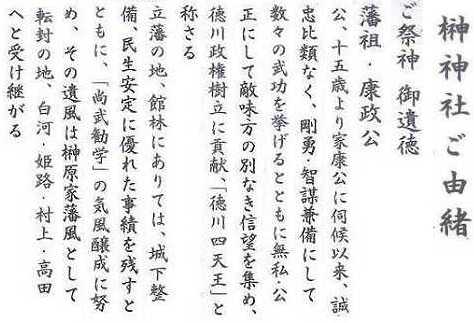 榊神社ご由緒
ご祭神 御遺徳
藩祖・康政公
公、十五歳より家康公に伺候以来、誠
忠比類なく、剛勇・智謀兼備にして
数々の武功を挙げるとともに無私・公
正にして敵味方の別なき信望を集め、
徳川政権樹立に貢献、「徳川四天王」と
称さる
立藩の地、館林にありては、城下整
備、民生安定に優れた事績を残すと
ともに、「尚武勧学」の気風醸成に努
め、その遺風は榊原家藩風として
転封の地、白河・姫路・村上・高田
へと受け継がる